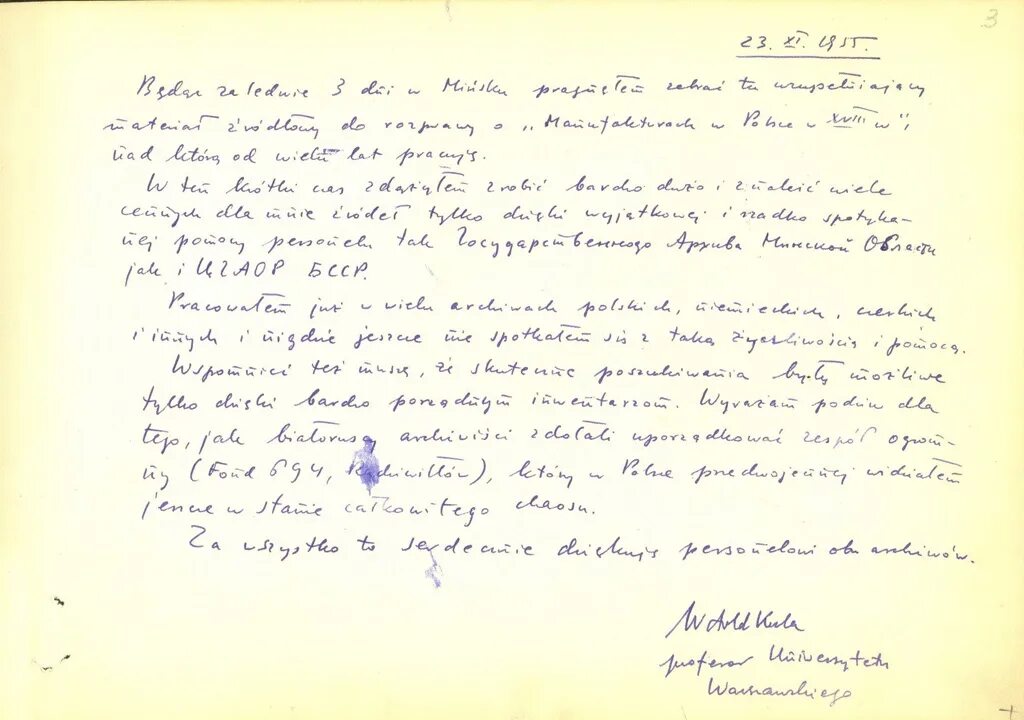 3
23. XI. 1955.
Będąc zaledwie 3 dni w Mińsku pragnąłem zebrać tu uzupełniający
materiał źródłowy do rozprawy o „Manufakturach w Polsce w XVIII w",
nad którą od wielu lat pracuję.
W ten krótki czas zdążyłem zrobić bardzo dużo i znaleźć wiele
cennych dla mnie źródeł tylko dzięki wyjątkowej i rzadko spotyka-
nej pomocy personelu tak Государственного Архива Минской Области
jak i ЦГАОР БССР.
Pracowałem już w wielu archiwach polskich, niemieckich, czeskich
i innych i nigdzie jeszcze nie spotkałem się z taką życzliwością i pomocą.
Wspomnieć też muszę, że skuteczne poszukiwania były możliwe
tylko dzięki bardzo porządnym inwentarzom. Wyrażam podziw dla
tego, jak białoruscy archiwiści zdołali uporządkować zespół ogrom-
ny (Fond 694, Radziwiłłów), który w Polsce przedwojennej widziałem
jeszcze w stanie całkowitego chaosu.
Za wszystko to serdecznie dziękuję personelowi obu archiwów.
Witold Kula
profesor Uniwersytetu
Warszawskiego